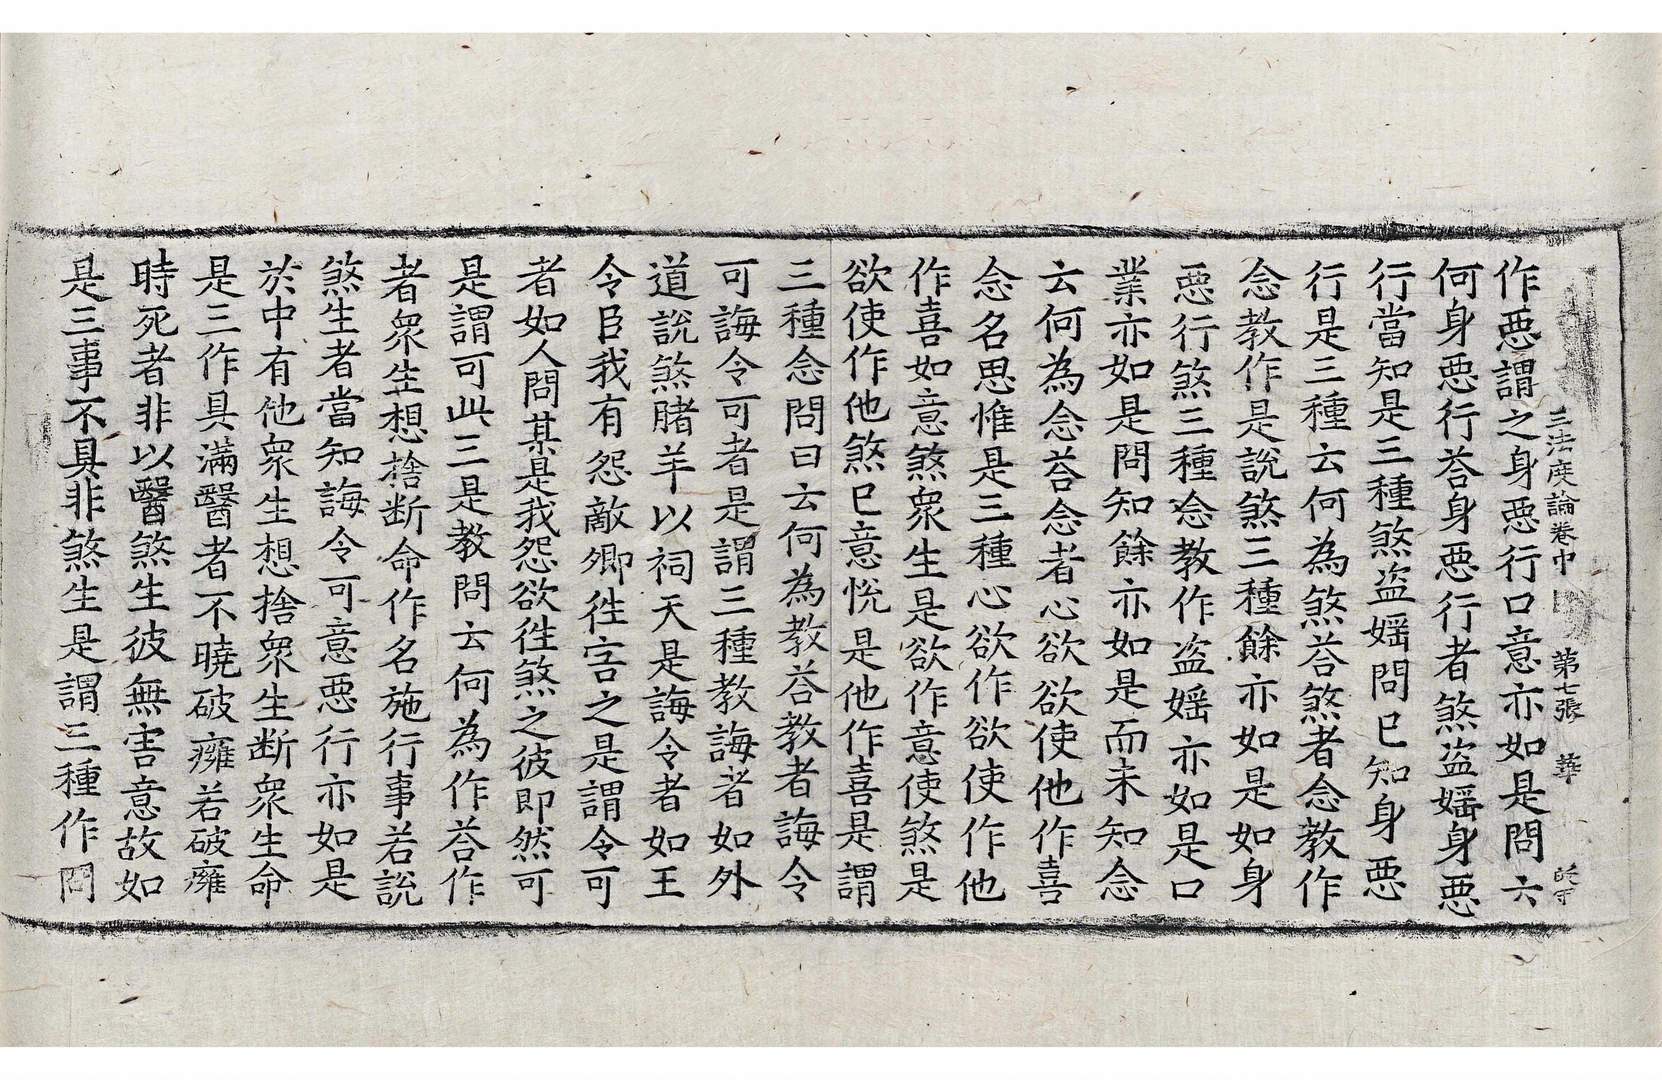 三法度論卷中 第七張 華
作惡謂之身惡行口意亦如是問六
何身惡行荅身惡行者煞盜婬身惡
行當知是三種煞盜婬問已知身惡
行是三種云何為煞荅煞者念教作
念教作是說煞三種餘亦如是如身
惡行煞三種念教作盜婬亦如是口
業亦如是問知餘亦如是而未知念
云何為念荅念者心欲欲使他作喜
念名思惟是三種心欲作欲使作他
作喜如意煞衆生是欲作意使煞是
欲使作他煞已意悅是他作喜是謂
三種念問曰云何為教荅教者誨令
可誨令可者是謂三種教誨者如外
道說煞睹羊以祠天是誨令者如王
令臣我有怨敵卿徃害之是謂令可
者如人問某是我怨欲徃煞之彼即然可
是謂可此三是教問云何為作荅作
者衆生想捨断命作名施行事若說
煞生者當知誨令可意惡行亦如是
於中有他衆生想捨衆生断衆生命
是三作具滿醫者不曉破癰若破癰
時死者非以醫煞生彼無害意故如
是三事不具非煞生是謂三種作問